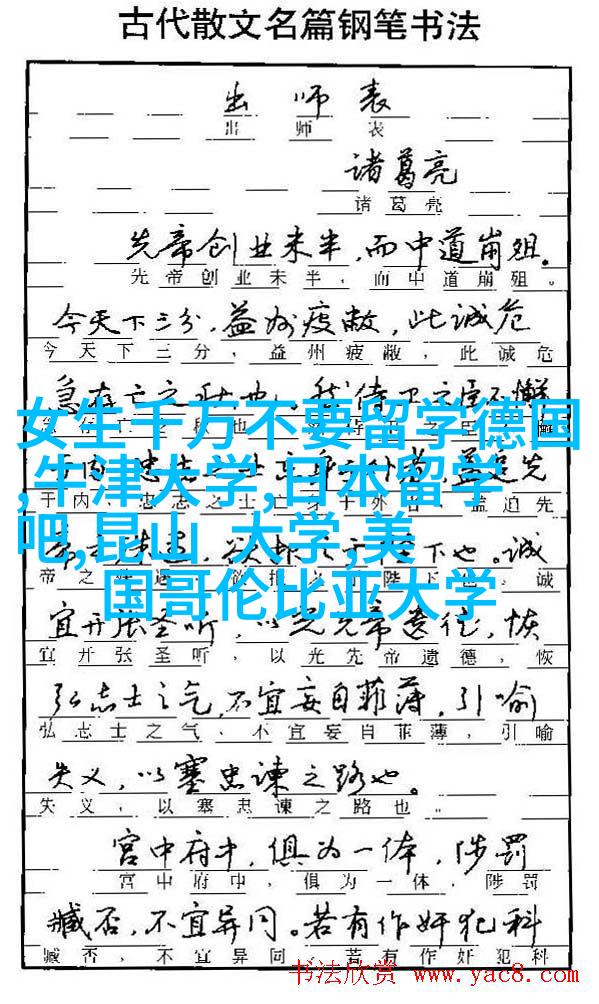 古代散文名篇钢笔书法
出师表
出师表
诸葛亮
诸葛亮
先帝创业未半，而中道崩殂。
先帝创业未半，而中道崩殂。
今天下三分，益州疲敝，此诚危
今天下三分，益州疲敝，此诚危
急存亡之秋也。然侍卫之臣不懈
女生千万不要留学德国
,牛津大学,日本留学
于内，忠志之士亡身于外者，盖追先
吧,昆山 大学,美
帝之殊遇，欲报之于陛下也。诚
国哥伦比亚大学
宜开张圣听，以光先帝遗德，恢
宜开张圣听，以光先帝遗德，恢
弘志士之气，不宜妄自菲薄，引喻
弘志士之气，不宜妄自菲薄，引喻
失义，以塞忠谏之路也。
失义，以塞忠谏之路也。
宫中府中，俱为一体，陟罚
宫中府中，俱为一体，陟罚
臧否，不宜异同。若有作奸犯科
臧否，不宜异同。若有作奸犯科
书法欣赏 www.yac8.com